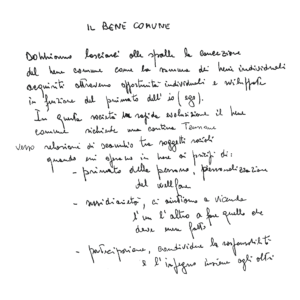 IL BENE COMUNE
Dobbiamo lasciarci alle spalle la concezione
del bene comune come la somma dei beni individuali
acquisiti attraverso opportunità individuali e sviluppate
in funzione del primato dell'io (ego).
In questa società la rapida evoluzione il bene
comune richiede una continua Tensione
verso relazioni di scambio tra soggetti sociali
quando si opera in base ai principi di:
- primato della persona, personalizzazione
del welfare
- sussidiarietà, ci aiutiamo a vicenda
l'un l'altro a fare quello che
deve esser fatto
- partecipazione, condividere la responsabilità
e l'impegno insieme agli altri